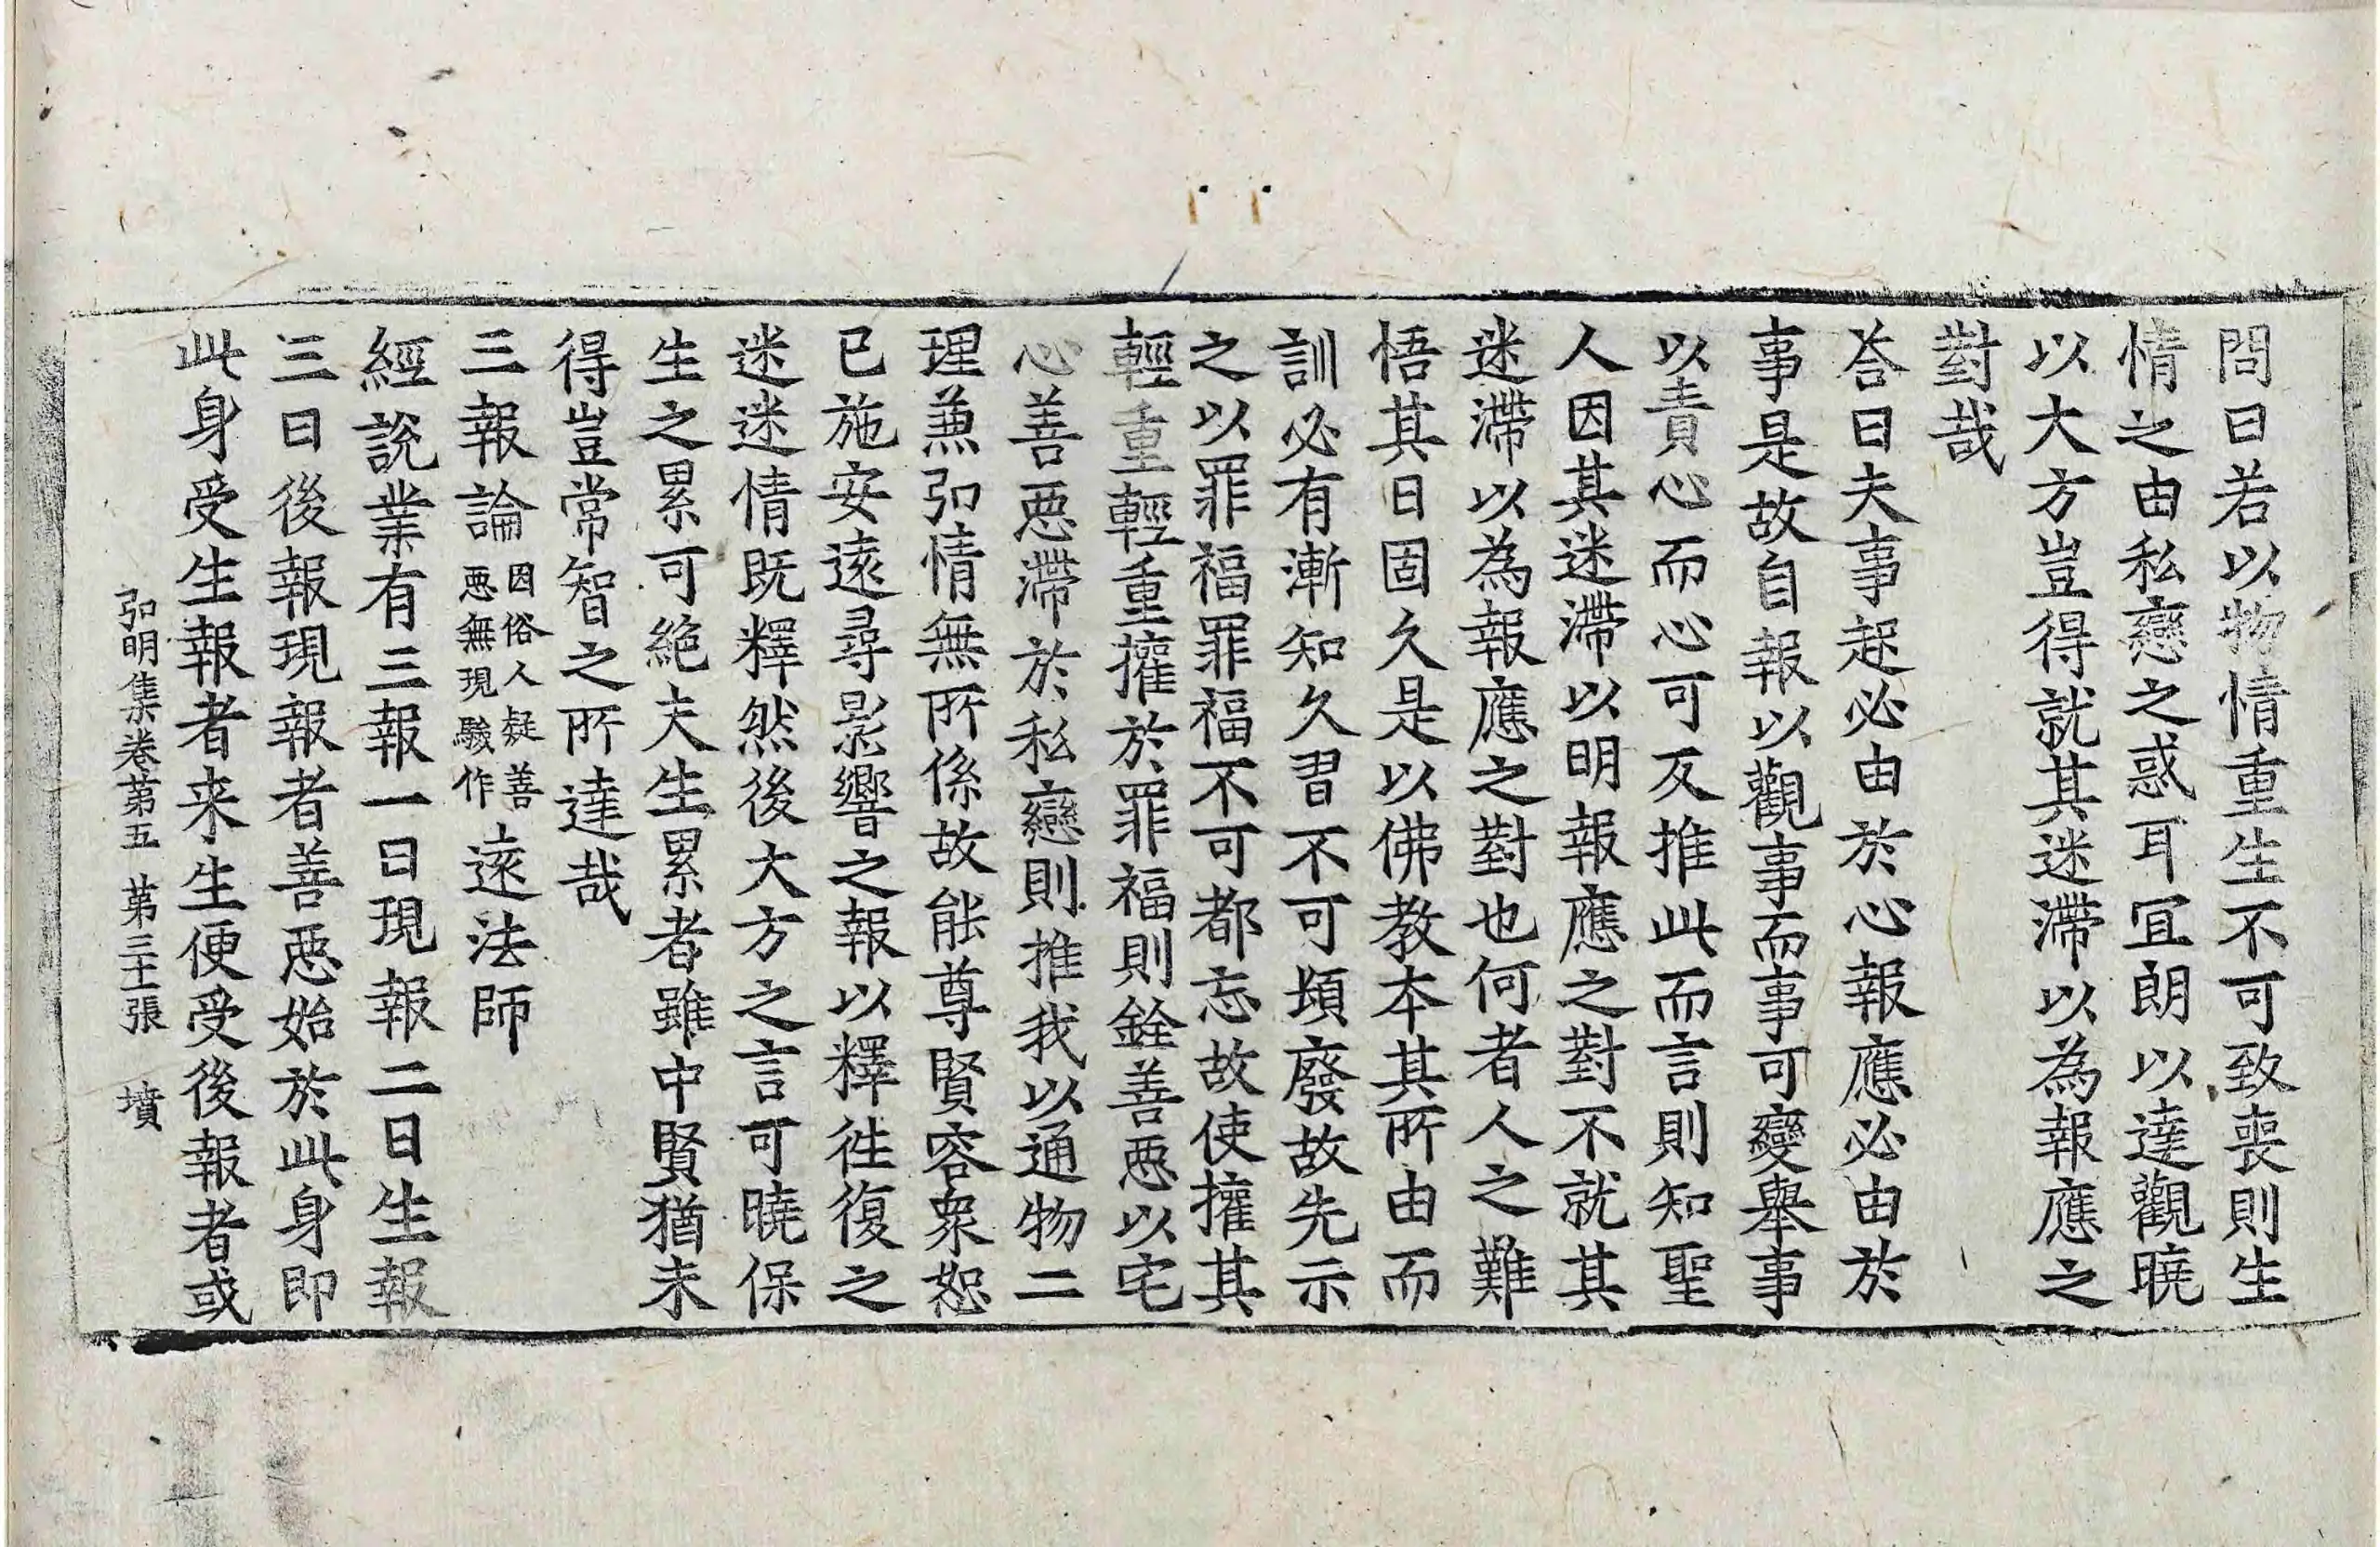 問曰若以物情重生不可致喪則生
情之由私戀之惑耳宜朗以達觀曉
以大方豈得就其迷滯以為報應之
對哉
荅曰夫事起必由於心報應必由於
事是故自報以觀事而事可變舉事
以責心而心可反推此而言則知聖
人因其迷滯以明報應之對不就其
迷滯以為報應之對也何者人之難
悟其日固久是以佛教本其所由而
訓必有漸知久習不可頓廢故先示
之以罪福罪福不可都忘故使攉其
輕重輕重攉於罪福則銓善惡以宅
心善惡滯於私戀則推我以通物二
理兼弘情無所係故能尊賢容衆恕
已施安遠尋影響之報以釋徃復之
迷迷情既釋然後大方之言可曉保
生之累可絶夫生累者雖中賢猶未
得豈常智之所達哉
三報論因俗人疑善惡無現驗作遠法師
經說業有三報一曰現報二曰生報
三曰後報現報者善惡始於此身即
此身受生報者来生便受後報者或
弘明集卷第五 第三十張 墳